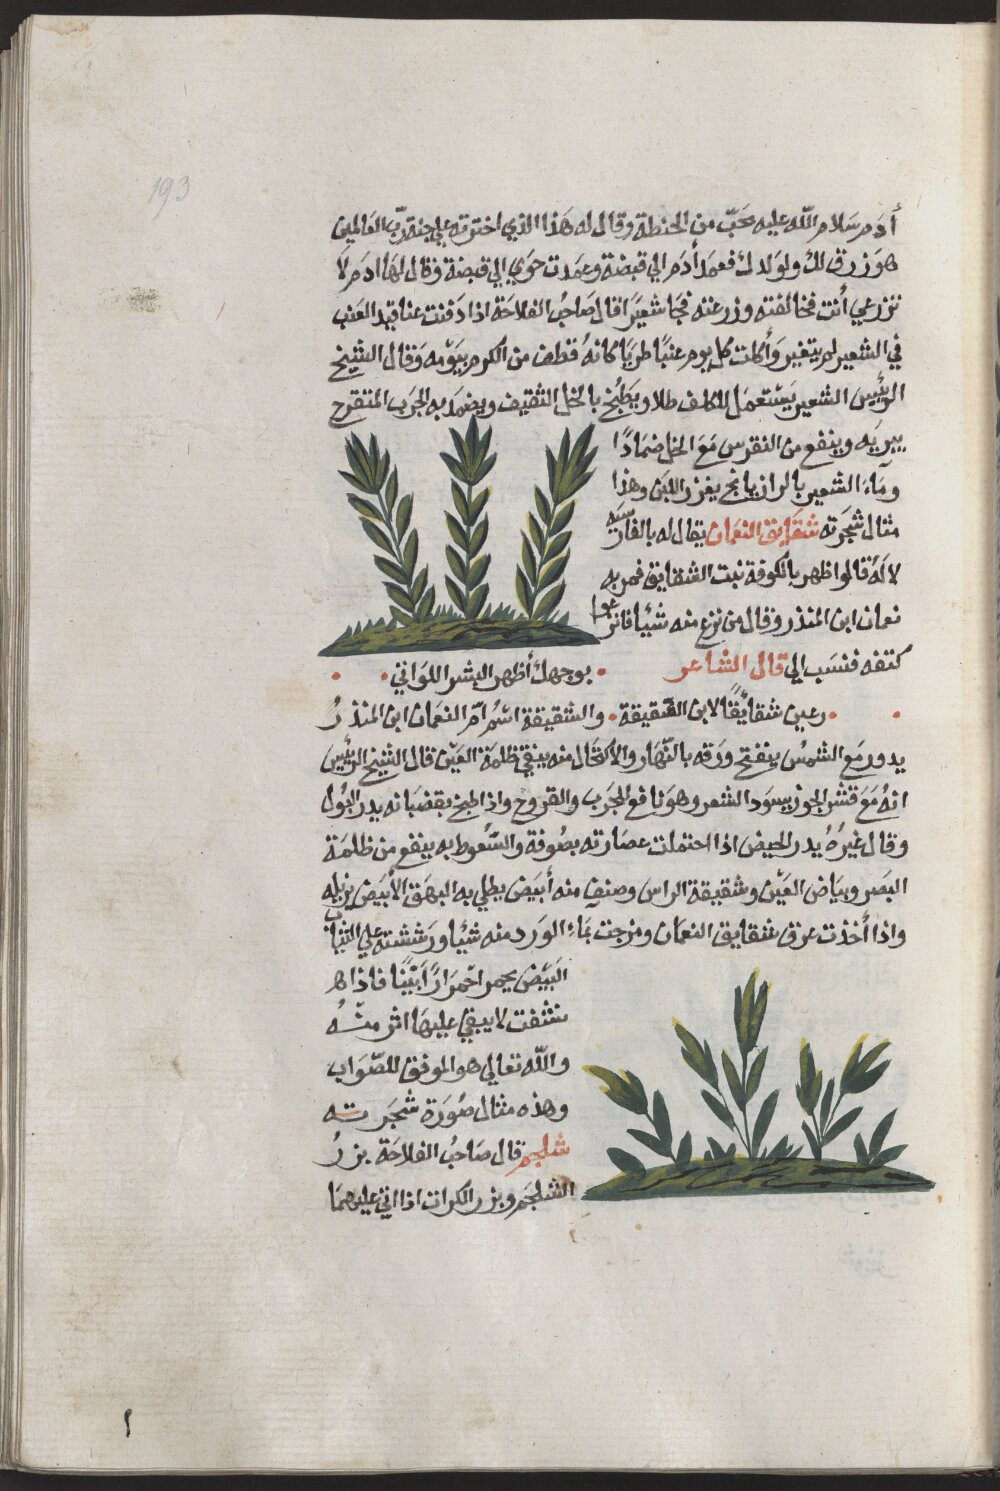 193
أدم سلام الله عليه بحب من الحنطة وقال له هذا الذي اخترته علي جنة رب العالمين
هو رزق لك ولولدك فعمد أدم الي قبضة وعمدت حوي الي قبضة وقال لها ادم لا
تزرعي أنت فخالفته وزرعته فجا شعيرا قال صاحب الفلاحة اذا دفنت عناقيد العنب
في الشعير لم يتغير وأكلت كل يوم عنبا طريا كانه قطف من الكرم بيومه وقال الشيخ
الرئيس الشعير يستعمل للكلف طلا ويطبخ بالخل الثقيف ويضمد به الجرب المتقرح
يبريه وينفع من النقرس مع الخل ضمادا
وماء الشعير بالرازيانج يغزر اللبن وهذا
مثال شجرته شقايق النعمان يقال له بالفارسيه
لاله قالوا ظهر بالكوفة نبت الشقايق فمر به
نعمان ابن المنذر وقال من نزع منه شيأ فانزعوا
كتفه فنسب الي قال الشاعر • بوجهك أظهر البشر اللواتي •
• رعين شقائقا لابن الشقيقة • والشقيقة اسم ام النعمان ابن المنذر
يدور مع الشمس ينفتح ورقه بالنهار والاكتحال منه ينقي ظلمة العين قال الشيخ الرئيس
انه مع قشر الجوز يسود الشعر وهو نافع للجرب والقروح واذا طبخ بقضبانه يدر البول
وقال غيره يدر الحيض اذا احتملت عصارته بصوفة والسعوط به ينفع من ظلمة
البصر وبياض العين وشقيقة الراس وصنف منه أبيض يطلي به البهق الأبيض يزيله
واذا أخذت عرق شقايق النعمان ومزجت بماء الورد منه شيأ ورششته علي الثياب
البيض يحمر احمرارا بينا فاذا ما
نشفت لا يبقي عليها اثر منه
والله تعالي هو الموفق للصواب
وهذه مثال صورة شجرته
شلجم قال صاحب الفلاحة بزر
الشلجم وبزر الكرات اذا اتي عليهما